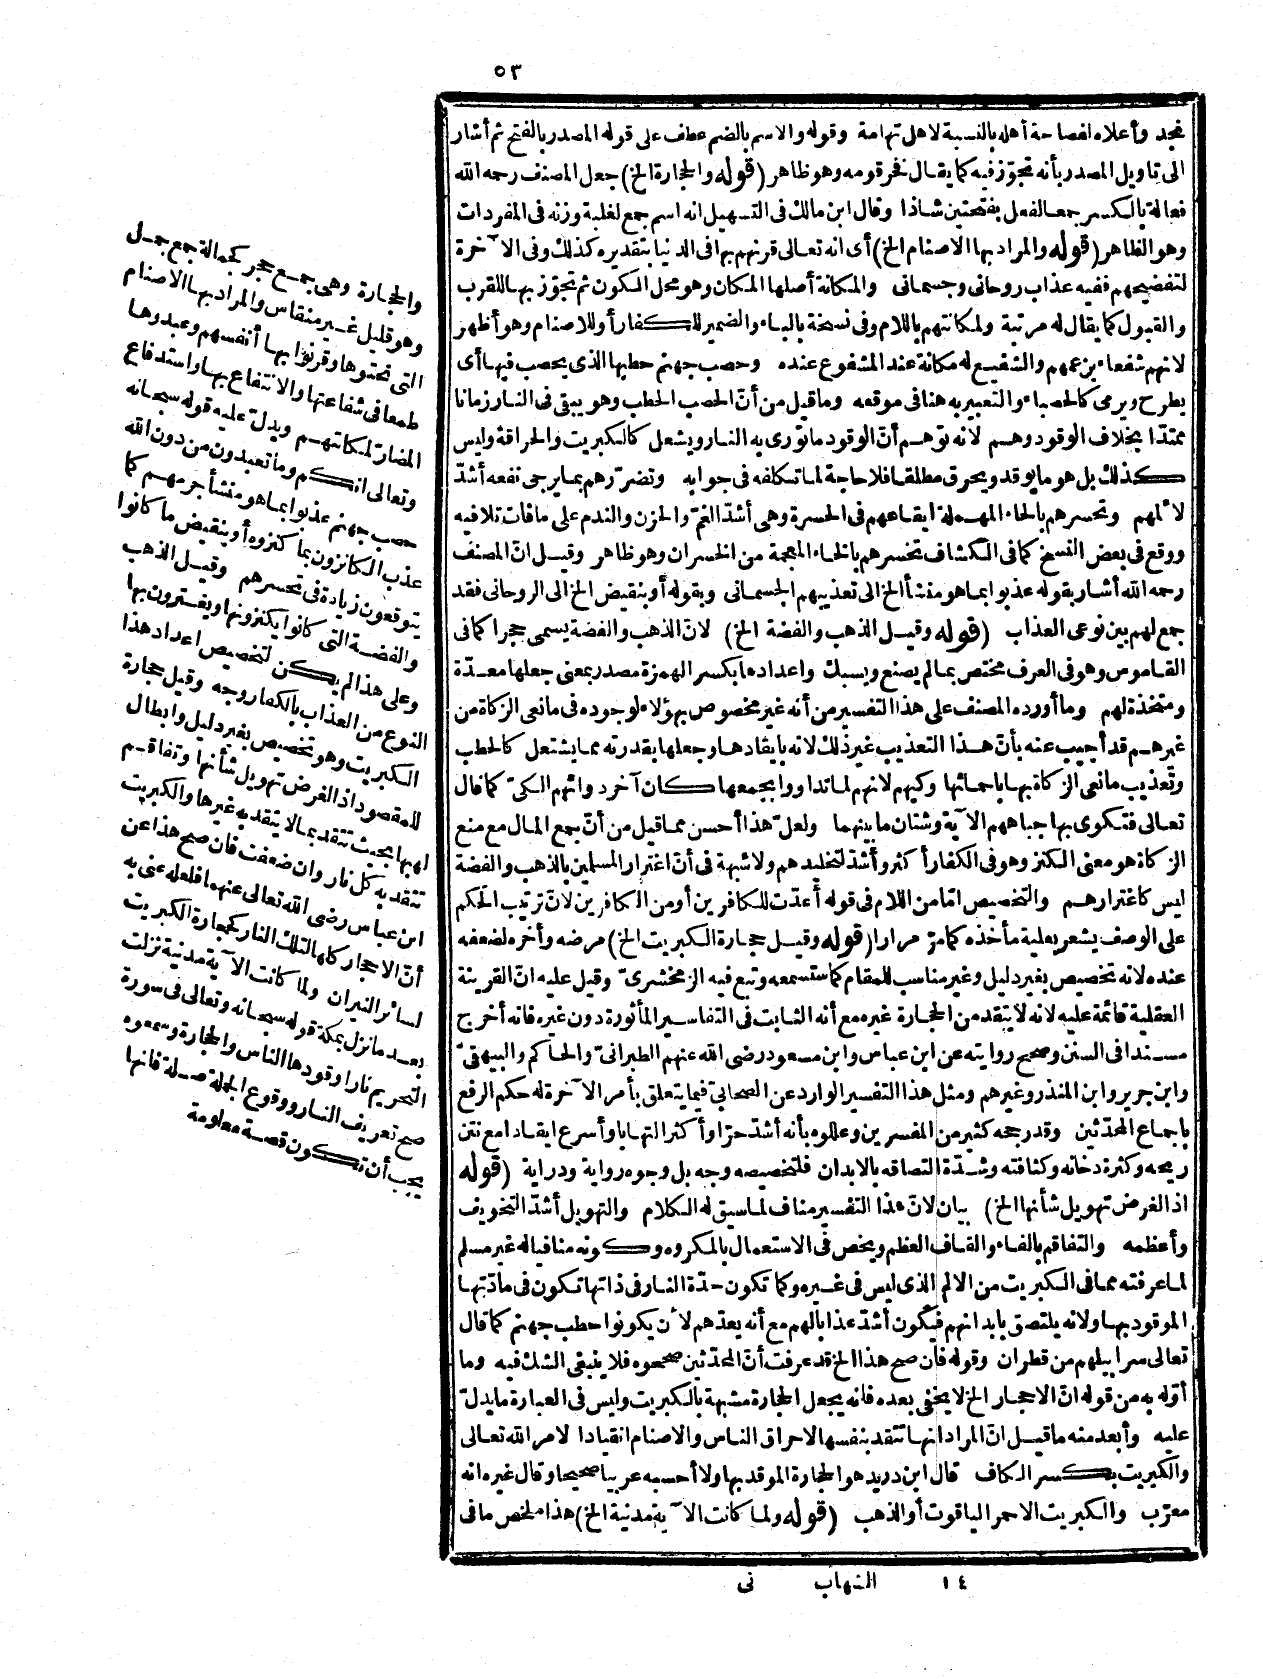 ٥٣
نجد وأعلاه افصاحة أهله بالنسبة لاهل تهامة وقوله والاسم بالضم عطف على قوله المصدر بالفتح ثم أشار
الى تاويل المصدر بأنه تجوّز فيه كما يقال نفر قومه وهو ظاهر (قوله والحجارة الخ) جعل المصنف رحمه الله
فعالة بالكسر جمعا لفعل بفتحتين شاذا وقال ابن مالك فى التسهيل انه اسم جمع لغلبة وزنه فى المفردات
وهو الظاهر (قوله والمراد بها الاصنام الخ) أى انه تعالى قرنهم بها فى الدنيا بتقديره كذلك وفى الآخرة
لتفضيحهم ففيه عذاب روحانى وجسمانى والمكانة أصلها المكان وهو محل الكون ثم تجوّز بها للقرب
والقبول كما يقال له مرتبة ولمكانتهم باللام وفى نسخة بالباء والضمير للكفار أو للاصنام وهو أظهر
لانهم شفعاء بزعمهم والشفيع له مكانة عند المشفوع عنده وحصب جهنم حطبها الذى يحصب فيها أى
يطرح ويرمى كالحصباء والتعبير به هنا فى موقعه وما قيل من أنّ الحصب الحطب وهو يبقى فى النار زمانا
ممتدّا بخلاف الوقود وهم لانه توهم أنّ الوقود ما تورى به النار ويشعل كالكبريت والحراقة وليس
كذلك بل هو ما يوقد ويحرق مطلقا فلا حاجة لما تكلفه فى جوابه وتضرّرهم بما يرجى نفعه أشدّ
لألمهم وتحسرهم بالحاء المهملة ايقاعهم فى الحسرة وهى أشدّ الغمّ والحزن والندم على ما فات تلافيه
ووقع فى بعض النسخ كما فى الكشاف تخسرهم بالخاء المعجمة من الخسران وهو ظاهر وقيل انّ المصنف
رحمه الله أشار بقوله عذبوا بما هو منشأ الخ الى تعذيبهم الجسمانى وبقوله أو بنقيض الخ الى الروحانى فقد
جمع لهم بين نوعى العذاب (قوله وقيل الذهب والفضة الخ) لانّ الذهب والفضة يسمى حجرا كما فى
القاموس وهو فى العرف مختص بما لم يصنع ويسبك واعداد ها بكسر الهمزة مصدر بمعنى جعلها معدّة
ومتخذة لهم وما أورده المصنف على هذا التفسير من أنه غير مخصوص بهؤلاء لوجوده فى مانعى الزكاة من
غيرهم قد أجيب عنه بأنّ هذا التعذيب غير ذلك لانه بايقادها وجعلها بقدرته مما يشتعل كالحطب
وتعذيب مانعى الزكاة بها باحمائها وكيهم لانهم لما تداووا بجمعها كان آخر دوائهم الكىّ كما قال
تعالى فتكوى بها جباههم الآية وشتان ما بينهما ولعلّ هذا أحسن مما قيل من أنّ جمع المال مع منع
الزكاة هو معنى الكنز وهو فى الكفار أكثر وأشدّ لتخليدهم ولا شبهة فى أنّ اغترار المسلمين بالذهب والفضة
ليس كاغترارهم والتخصيص امّا من اللام فى قوله أعدّت للكافرين أو من الكافرين لانّ ترتيب الحكم
على الوصف يشعر بعلية مأخذه كما مرّ مرارا (قوله وقيل حجارة الكبريت الخ) مرضه وأخره لضعفه
عنده لانه تخصيص بغير دليل وغير مناسب للمقام كما ستسمعه وتبع فيه الزمخشرىّ وقيل عليه انّ القرينة
العقلية قائمة عليه لانه لا يتقد من الحجارة غيره مع أنه الثابت فى التفاسير المأثورة دون غيره فانه أخرج
مسندا فى السنن وصحيح روايته عن ابن عباس وابن مسعود رضى الله عنهم الطبرانىّ والحاكم والبيهقىّ
وابن جرير وابن المنذر وغيرهم ومثل هذا التفسير الوارد عن الصحابىّ فيما يتعلق بأمر الآخرة له حكم الرفع
باجماع المحدّثين وقد رجحه كثير من المفسرين وعللوه بأنه أشدّ حرّا وأكثر التهابا وأسرع ايقادا مع نتن
ريحه وكثرة دخانه وكثافته وشدّة التصاقه بالابدان فلتخصيصه وجه بل وجوه رواية ودراية (قوله
اذ الغرض تهويل شأنها الخ) بيان لانّ هذا التفسير مناف لما سيق له الكلام والتهويل أشدّ التخويف
وأعظمه والتفاقم بالفاء والقاف العظم ويخص فى الاستعمال بالمكروه وكونه منافيا له غير مسلم
لما عرفته مما فى الكبريت من الالم الذى ليس فى غيره وكما تكون حدّة النار فى ذاتها تكون فى مادّتها
الموقود بها ولانه يلتصق بابدانهم فيكون أشدّ عذابا لهم مع أنه يعدّهم لأن يكونوا حطب جهنم كما قال
تعالى سرابيلهم من قطران وقوله فان صح هذا الخ قد عرفت أنّ المحدّثين صححوه فلا ينبغى الشك فيه وما
أوّله به من قوله انّ الاحجار الخ لا يخفى بعده فانه يجعل الحجارة مشبهة بالكبريت وليس فى العبارة ما يدلّ
عليه وأبعد منه ما قيل انّ المراد انها تتقد بنفسها لاحراق الناس والاصنام انقيادا لامر الله تعالى
والكبريت بكسر الكاف قال ابن دريد هو الحجارة الموقد بها ولا أحسبه عربيا صحيحا وقال غيره انه
معرّب والكبريت الاحمر الياقوت أو الذهب (قوله ولما كانت الآية مدنية الخ) هذا ملخص ما فى
والحجارة وهى جمع حجر كجمالة جمع جمل
وهو قليل غير منقاس والمراد بها الاصنام
التى نحتوها وقرنوا بها أنفسهم وعبدوها
طمعا فى شفاعتها والانتفاع بها واستدفاع
المضار لمكانتهم ويدلّ عليه قوله سبحانه
وتعالى انكم وما تعبدون من دون الله
حصب جهنم عذبوا بما هو منشأ جرمهم كما
عذب الكانزون بما كنزوه أو بنقيض ما كانوا
يتوقعون زيادة فى تحسرهم وقيل الذهب
والفضة التى كانوا يكنزونها ويغترون بها
وعلى هذا لم يكن لتخصيص اعداد هذا
النوع من العذاب بالكفار وجه وقيل حجارة
الكبريت وهو تخصيص بغير دليل وابطال
للمقصود اذ الغرض تهويل شأنها وتفاقم
لهبها بحيث تتقد بما لا يتقد به غيرها والكبريت
تتقد به كل نار وان ضعفت فان صح هذا عن
ابن عباس رضى الله تعالى عنهما فلعله عنى به
أنّ الاحجار كلها لتلك النار كحجارة الكبريت
لسائر النيران ولما كانت الآية مدنية نزلت
بعد ما نزل بمكة قوله سبحانه وتعالى فى سورة
التحريم نارا وقودها الناس والحجارة وسمعوه
صح تعريف النار ووقوع الجملة صلة فانها
يجب أن تكون قصة معلومة
١٤ الشهاب نى